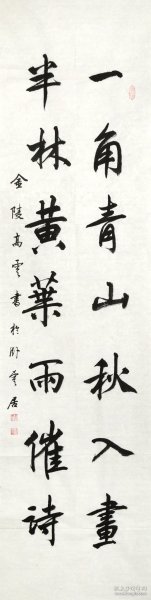 一角青山秋入畫
半林黃葉雨催詩
金陵高雲書於卧雲居